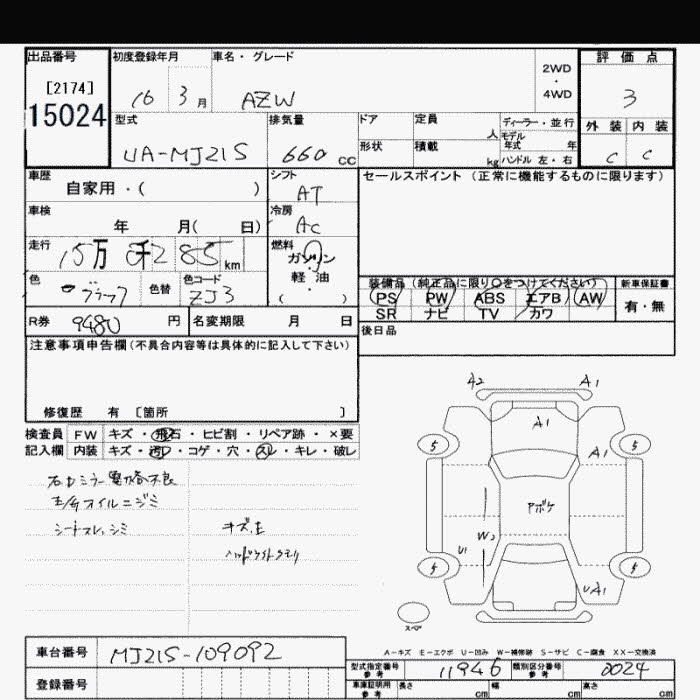 出品番号 初度登録年月 車名・グレード 評価点
[2174]
15024
16 3月 AZW 2WD ・ 4WD 3
型式 排気量 ドア 定員 人 ディーラー・並行 外装 内装
モデル年式 年
UA-MJ21S 660 CC 形状 積載 kg ハンドル 左・右 C C
車歴 シフト セールスポイント(正常に機能するものに限ります)
自家用・( ) AT
車検 冷房
年 月( 日) AC
走行 燃料
15万 0千285 km ガソリン
軽油
( )
色 色替 色コード
ブラック ZJ3
装備品(純正品に限り○をつけてください) 新車保証書
PS PW ABS エアB AW 有・無
SR ナビ TV カワ
R券 9480 円 名変期限 月 日
後日品
注意事項申告欄(不具合内容等は具体的に記入して下さい)
修復歴 有 [箇所 ]
検査員 FW キズ・飛石・ヒビ割・リペア跡・×要
記入欄 内装 キズ・汚レ・コゲ・穴・スレ・キレ・破レ
A2 A1
A1
5 A1 5
Pボケ
W2
U1
5 5
UA1
スペア
オイルニジミ
シートスレ、シミ
キズ
ヘッドライトクモリ
A-キズ E-エクボ U-凹み W-補修跡 S-サビ C-腐食 XX-交換済
車台番号 MJ21S-109092
型式指定番号 参考 11946 類別区分番号 参考 0024
登録番号
車庫証明用 参考 長さ cm 幅 cm 高さ cm